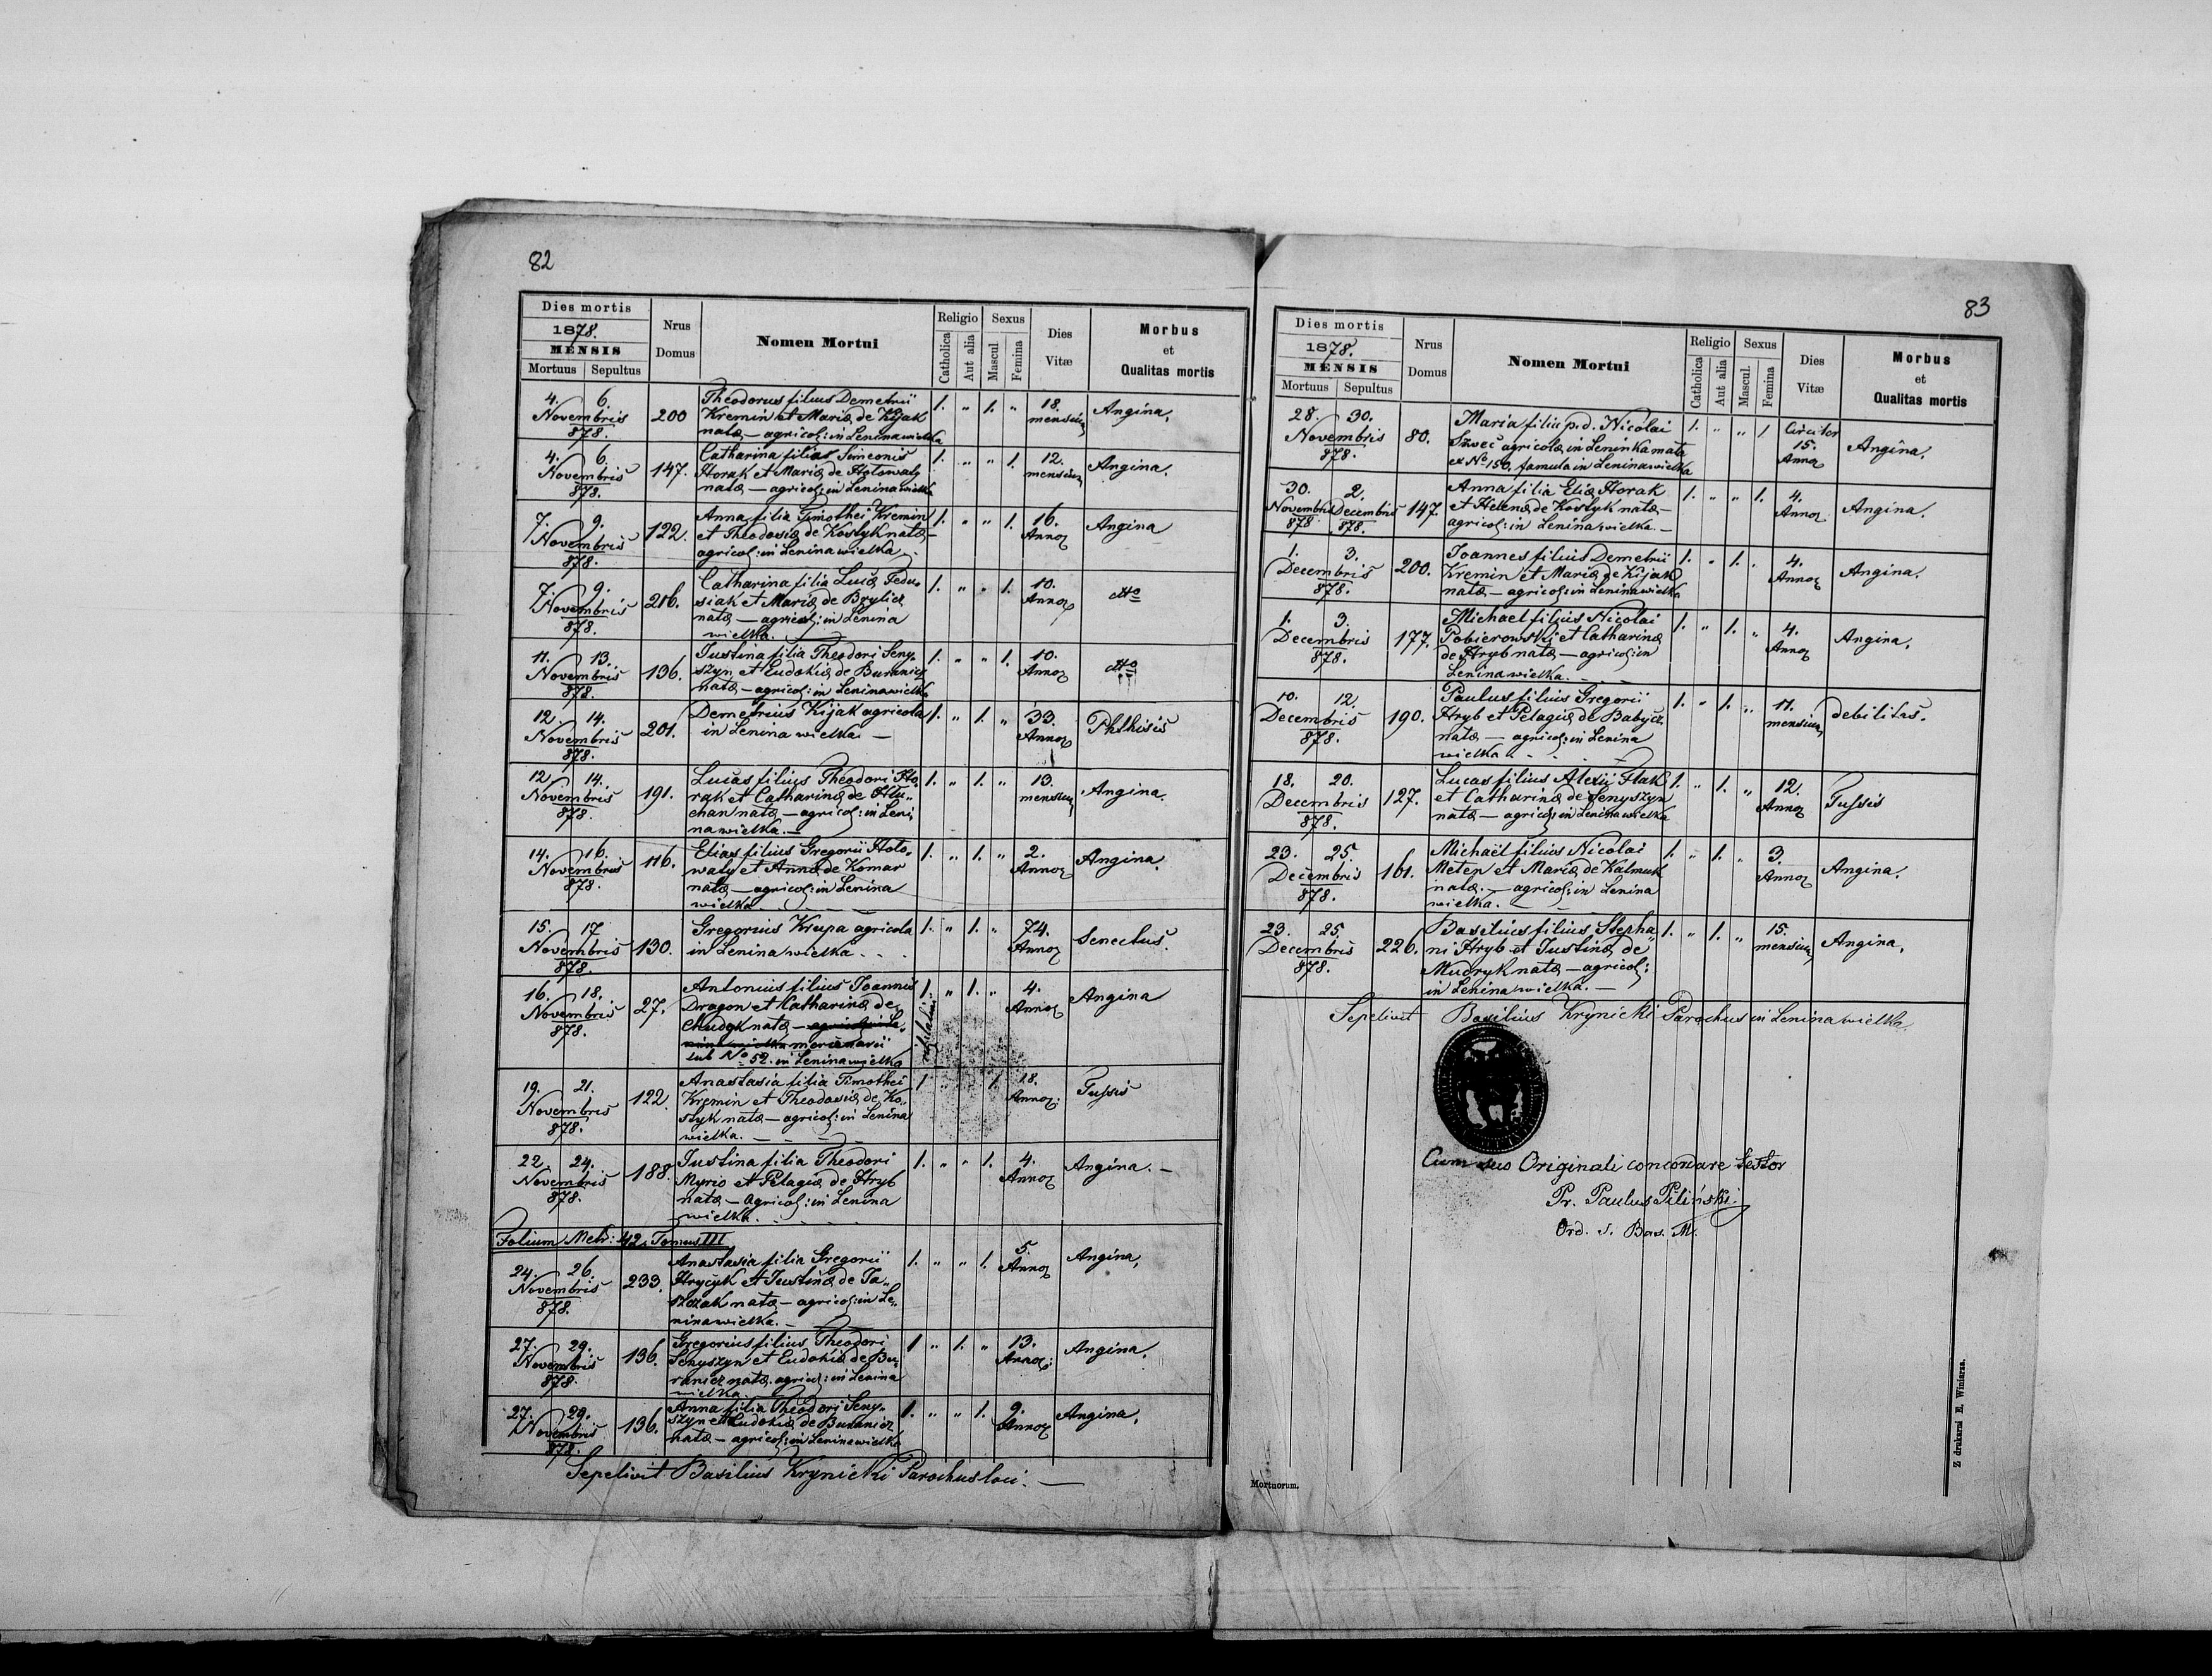 82
Dies mortis
1878.
MENSIS
Mortuus Sepultus
Nrus Domus
Nomen Mortui
Religio
Catholica
Aut alia
Sexus
Mascul
Femina
Dies Vitæ
Morbus et Qualitas mortis
4. 6. Theodorus filius Demetrii
Novembris 200 Kremin et Maria de Kijak 1. " 1. " 18. mensium Angina.
878. nata — agricol: in Lenina wielka
4. 6. Catharina filia Simeonis
Novembris 147. Horak et Maria de Hotowaty 1. " " 1. 12. mensium Angina.
878. nata — agricol: in Lenina wielka
7. 9. Anna filia Timothei Kremin
Novembris 122. et Theodosia de Kostyk nata — 1. " " 1. 16. Annor Angina
878. agricol: in Lenina wielka
7. 9. Catharina filia Luca Fedu„
Novembris 216. siak et Maria de Brylicz 1. " " 1. 10. Annor dtto
878. nata — agricol: in Lenina
wielka.
11. 13. Justina filia Theodori Seny„
Novembris 136. szyn et Eudokia de Buranicz 1. " " 1. 10. Annor dtto
878. nata — agricol: in Lenina wielka
12. 14. Demetrius Kijak agricola
Novembris 201. in Lenina wielka. — 1. " 1. " 33. Annor Phthisis
878.
12 14. Lucas filius Theodori Ho„
Novembris 191. rak et Catharina de Hlu„ 1. " 1. " 13. mensium Angina.
878. chan nata — agricol: in Leni„
na wielka. —
14. 16. Elias filius Gregorii Hoto„
Novembris 116. waty et Anna de Komar 1. " 1. " 2. Annor Angina.
878. nata — agricol: in Lenina
wielka
15. 17 Gregorius Krupa agricola
Novembris 130. in Lenina wielka. 1. " 1. " 74. Annor Senectus.
878.
16. 18. Antonius filius Joannis
Novembris 27. Dragon et Catharina de 1. " 1. " 4. Annor Angina
878. Chudyk nata — agricol: in Le„
nina wielka mercenarii
sub No 52. in Lenina wielka
19. 21. Anastasia filia Timothei
Novembris 122. Kremin et Theodosia de Ko„ 1 " " 1. 18. Annor: Tussis
878. styk nata — agricol: in Lenina
wielka. —
22. 24. Justina filia Theodori
Novembris 188. Myrio et Pelagia de Hryb 1. " " 1. 4. Annor Angina. —
878. nata — agricol: in Lenina
wielka.
Folium Metr: 42. Tomus III
24. 26. Anastasia filia Gregorii
Novembris 233. Hrycyk et Justina de Ja„ 1. " " 1. 5. Annor Angina.
878. szczak nata — agricol: in Le„
nina wielka. —
27. 29. Gregorius filius Theodori
Novembris 136. Senyszyn et Eudokia de Bu„ 1 " 1. " 13. Annor: Angina.
878. ranicz nata. agricol: in Lenina
wielka.
27. 29. Anna filia Theodori Seny„
Novembris 136. szyn et Eudokia de Buranicz 1. " " 1. 9. Annor Angina.
878. nata — agricol: in Lenina wielka
Sepelivit Basilius Krynicki Parochus loci. —
83
Dies mortis
1878.
MENSIS
Mortuus Sepultus
Nrus Domus
Nomen Mortui
Religio
Catholica
Aut alia
Sexus
Mascul.
Femina
Dies Vitæ
Morbus et Qualitas mortis
28. 30. Maria filia p. d. Nicolai
Novembris 80. Szweć agricola in Leninka mata 1. " " 1 Circiter 15. Annor Angina.
878. ex No 150. famula in Lenina wielka
30. 2. Anna filia Elia Horak
Novembris Decembris 147. et Helena de Kostyk nata — 1. " " 1. 4. Annor Angina.
878 878. agricol: in Lenina wielka. —
1. 3. Joannes filius Demetrii
Decembris 200. Kremin et Maria de Kijak 1. " 1. " 4. Annor Angina.
878. nata — agricol: in Lenina wielka
1. 3. Michael filius Nicolai
Decembris 177. Pobierowski et Catharina 1. " 1. " 4. Annor Angina.
878. de Hryb nata — agricol: in
Lenina wielka. —
10. 12. Paulus filius Gregorii
Decembris 190. Hryb et Pelagia de Babycz 1. " 1. " 11. mensium debilitas.
878. nata — agricol: in Lenina
wielka
18. 20. Lucas filius Alexii Flak
Decembris 127. et Catharina de Senyszyn 1. " 1. " 12. Annor Tussis
878. nata — agricol: in Lenina wielka
23. 25. Michaël filius Nicolai
Decembris 161. Meten et Maria de Kalmuk 1. " 1. " 3. Annor Angina.
878. nata. — agricol: in Lenina
wielka.
23. 25. Basilius filius Stepha„
Decembris 226. ni Hryb et Justina de 1. " 1. " 15. mensium Angina.
878. Mudryk nata — agricol:
in Lenina wielka. —
Sepelivit Basilius Krynicki Parochus in Lenina wielka.
Cum suo Originali concordare testor
Pr. Paulus Piliński
Ord. S. Bas. M.
Mortuorum.
Z drukarni E. Winiarza.